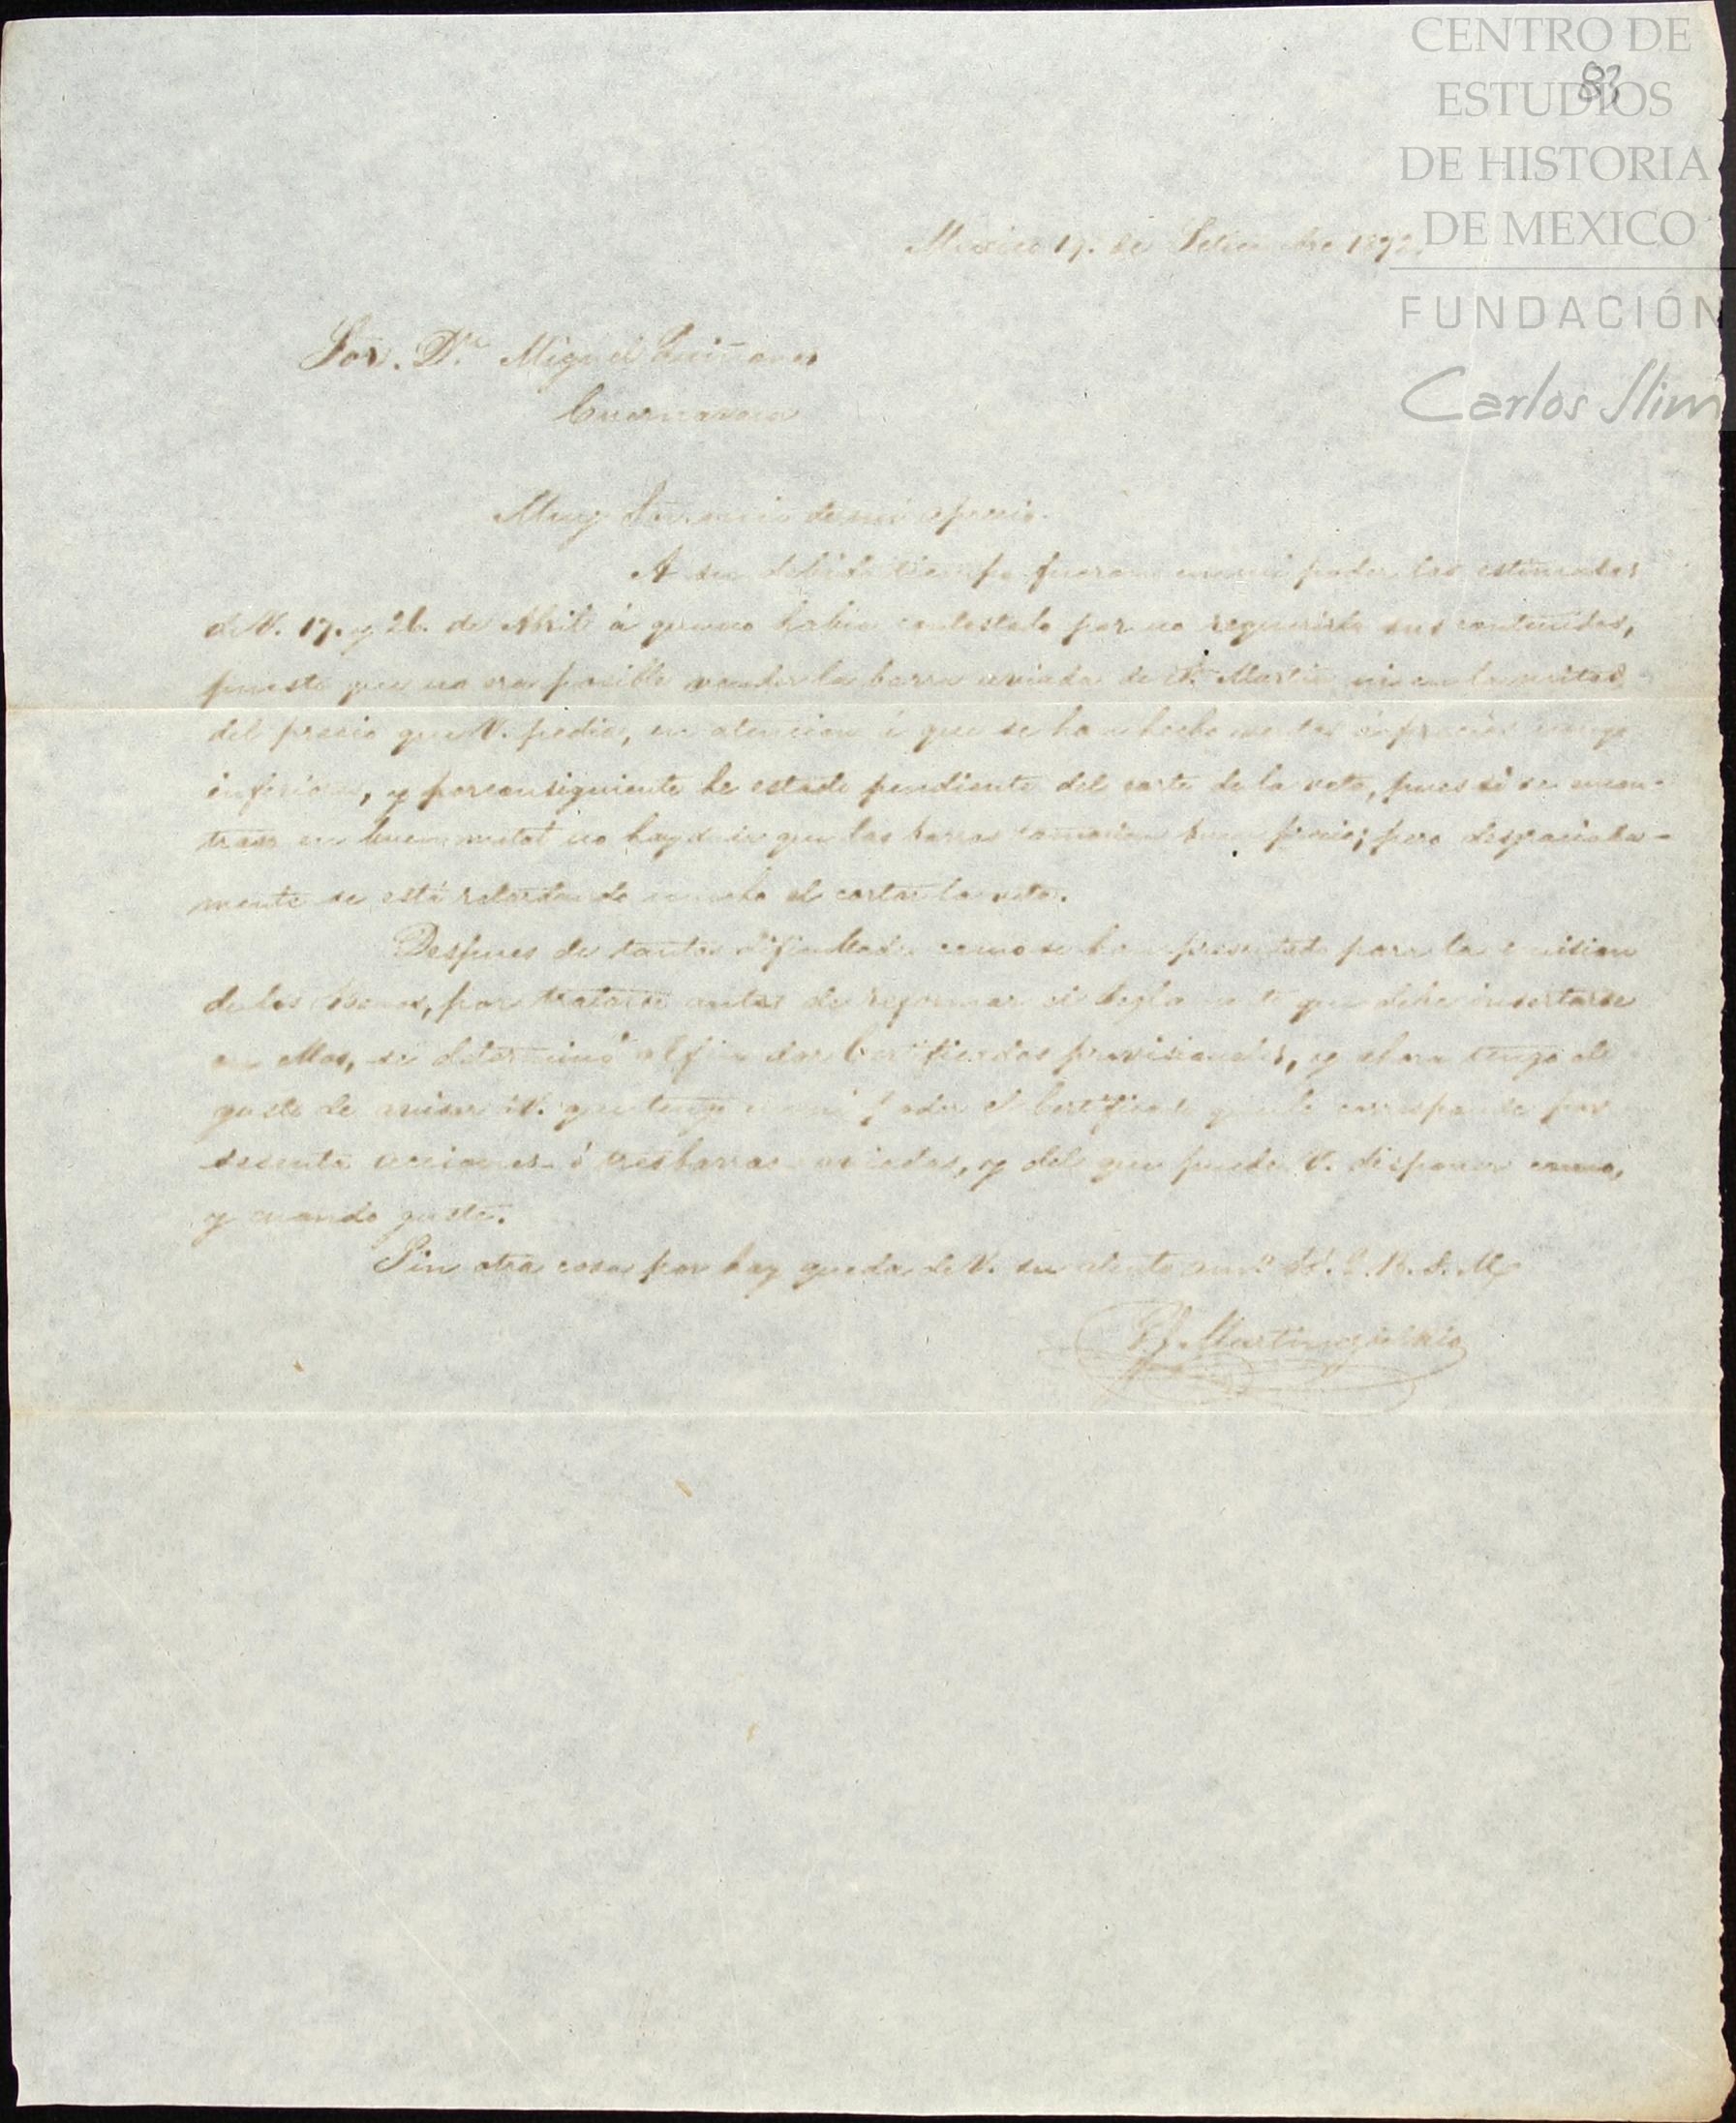 CENTRO DE
ESTUDIOS
DE HISTORIA
DE MEXICO
FUNDACIÓN
Carlos Slim
83
Mexico 17. de Setiembre 1872.
Sor. Dn. Miguel Quiñones
Cuernavaca
Muy Sor. mio de mi aprecio.
A su debido tiempo fueron en mi poder las estimadas
de V. 17. y 26. de Abril á que no habia contestado por no requerirlo sus contenidos,
puesto que no era posible vender la barra aviada de Sn. Martin ni en la mitad
del precio que V. pedia, en atencion á que se han hecho ventas á precios muy
inferiores, y por consiguiente he estado pendiente del corte de la veta, pues si se encon-
trase en buen metal no hay duda que las barras tomarian buen precio; pero desgraciada-
mente se está retardando mucho el cortar la veta.
Despues de tantas dificultades como se han presentado para la emision
de los Bonos, por tratarse antes de reformar el Reglamento que debe insertarse
en ellos, se determinó al fin dar Certificados provisionales, y ahora tengo el
gusto de avisar á V. que tengo en mi poder el Certificado que le corresponde por
sesenta acciones ó tres barras aviadas, y del que puede V. disponer como,
y cuando guste.
Sin otra cosa por hoy queda de V. su atento am.º S.S. Q. B. S. M.